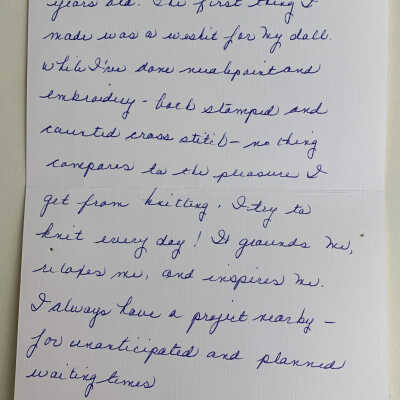 years old. The first thing I
made was a weskit for my doll.
While I've done needlepoint and
embroidery - both stamped and
counted cross stitch - nothing
compares to the pleasure I
get from knitting. I try to
knit every day! It grounds me,
relaxes me, and inspires me.
I always have a project nearby -
for unanticipated and planned
waiting times